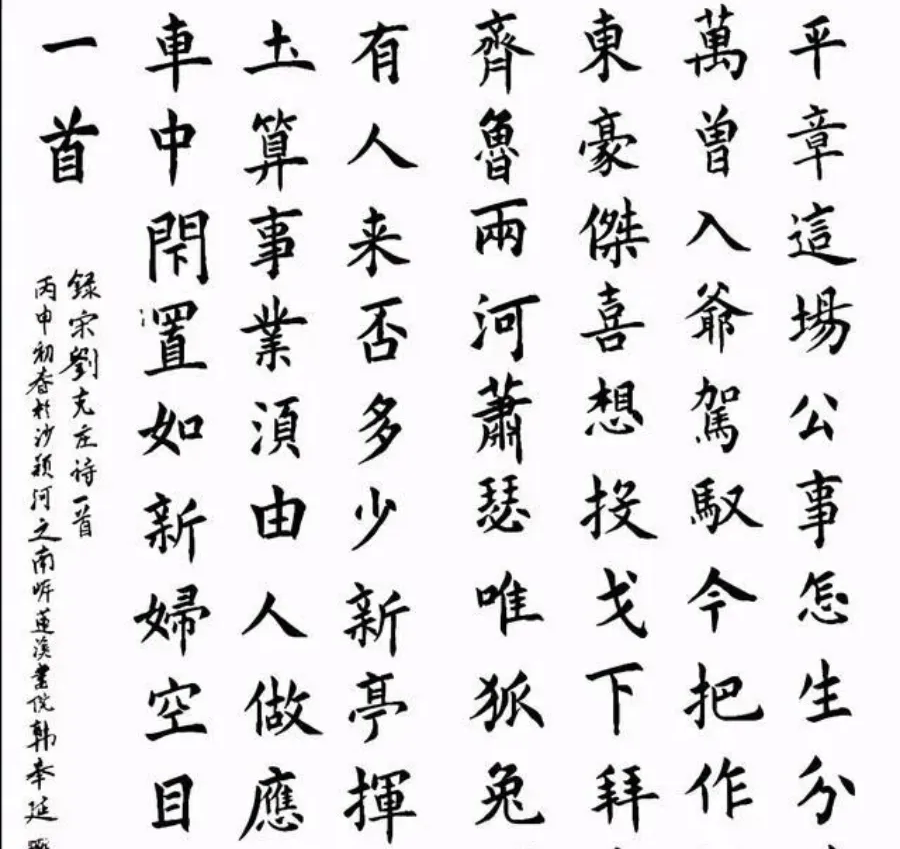 平章這場公事怎生分
萬曾入爺駕馭今把作
東豪傑喜想投戈下拜
齊魯兩河蕭瑟唯狐兔
有人来否多少新亭揮
土算事業須由人做應
車中閇置如新婦空目
一首
録宋劉克庄诗一首
丙申初春於沙颖河之南岍蓮溪書院韩奉延